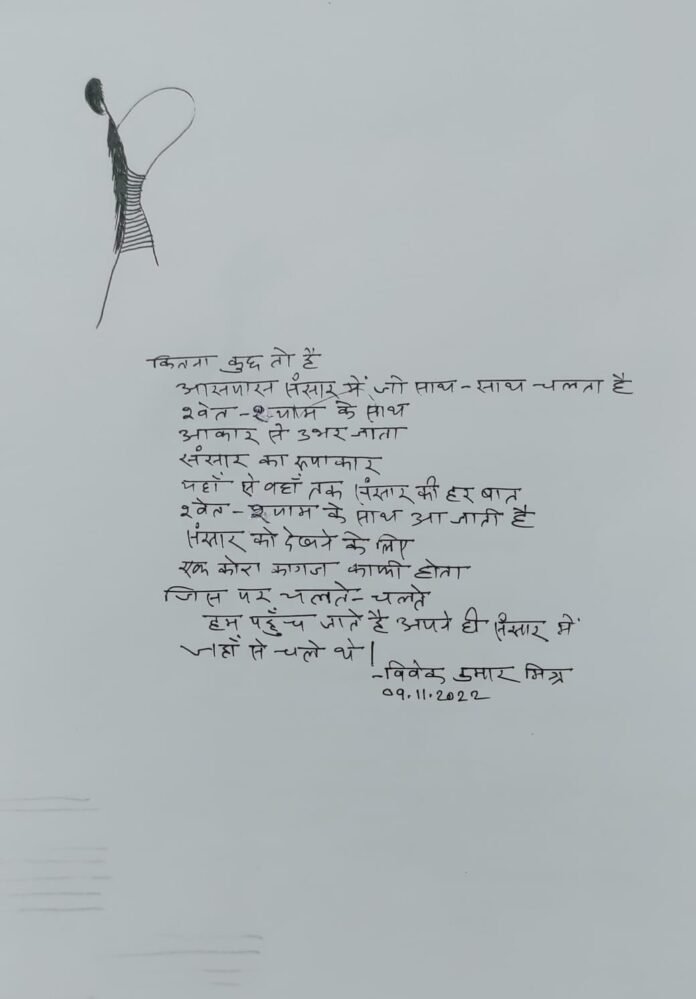 कितना कुछ तो है
आसपास संसार में जो साथ-साथ चलता है
श्वेत-श्याम के साथ
आकार से उभर जाता
संसार का रूपाकार
यहाँ से वहाँ तक संसार की हर बात
श्वेत-श्याम के साथ आ जाती है
संसार को देखने के लिए
एक कोरा कागज काफी होता
जिस पर चलते-चलते
हम पहुँच जाते है अपने ही संसार में
जहाँ से चले थे।
-विवेक कुमार मिश्र
09.11.2022